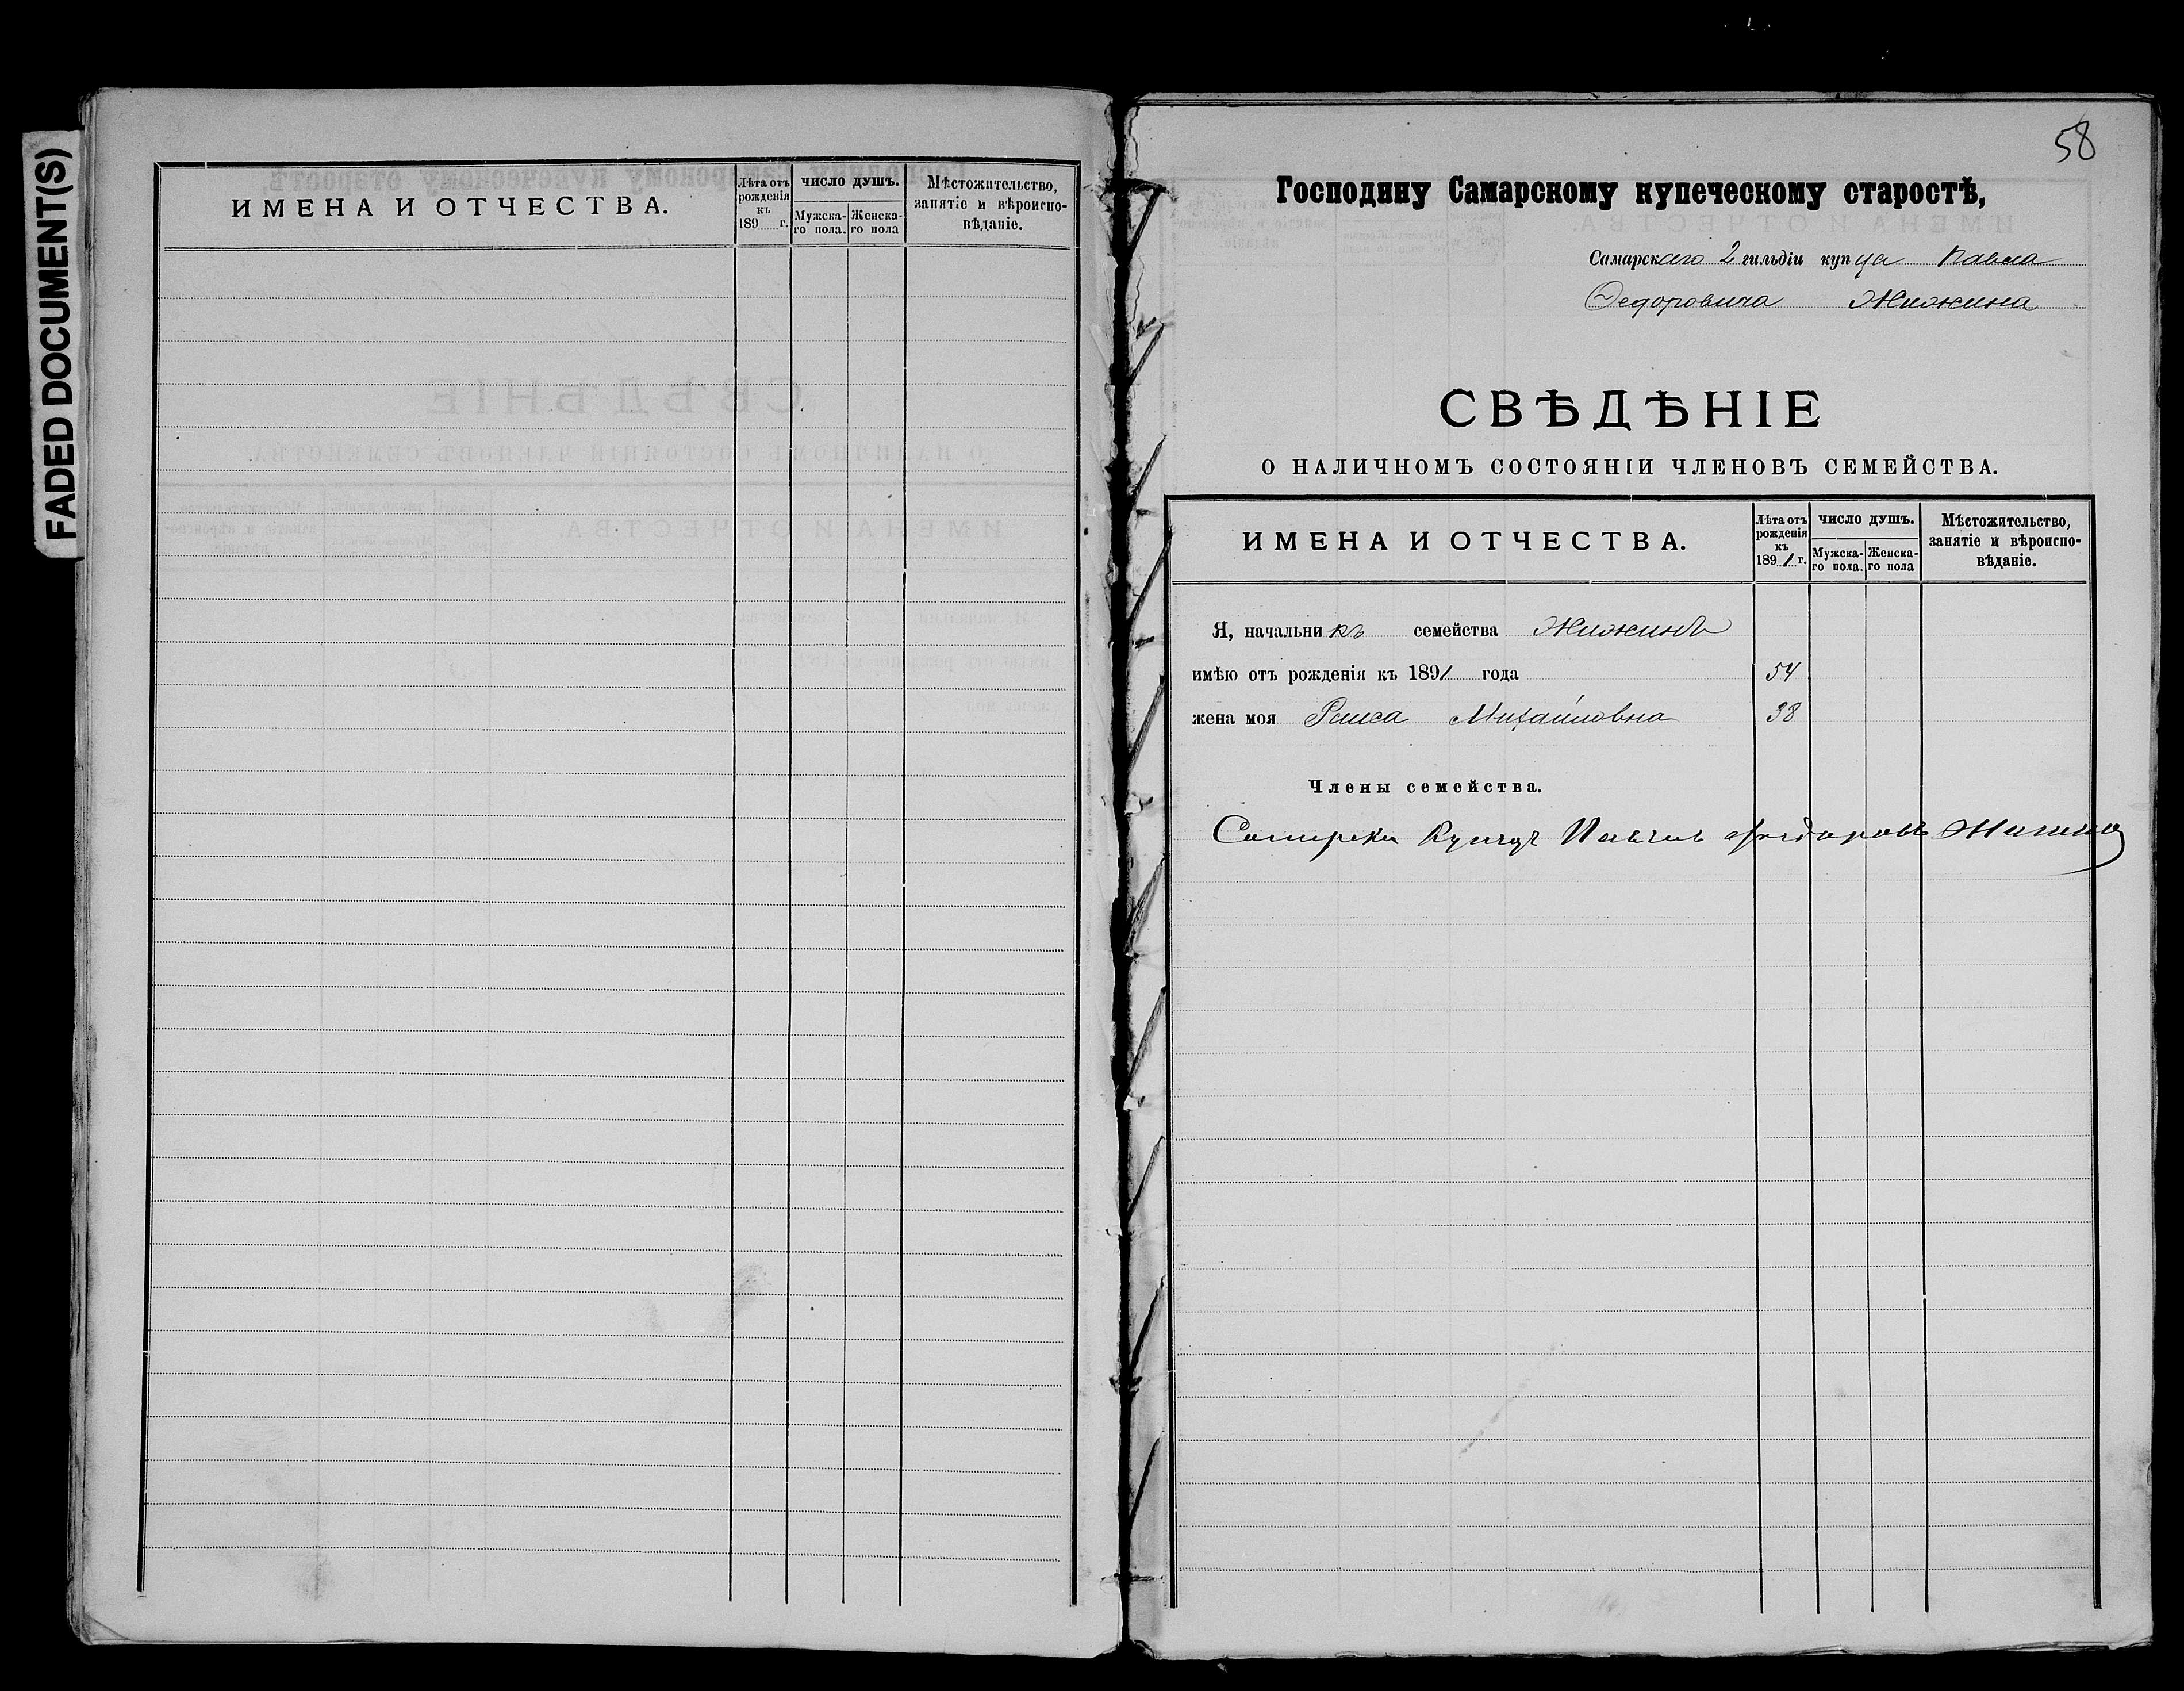 FADED DOCUMENT(S)
ИМЕНА И ОТЧЕСТВА.
Лѣта отъ рожденія къ 189 г.
ЧИСЛО ДУШЪ.
Мужска-го пола.
Женска-го пола
Мѣстожительство, занятіе и вѣроиспо-вѣданіе.
58
Господину Самарскому купеческому старостѣ,
Самарскаго 2 гильдіи купца Павла
Федоровича Жижина
СВѢДѢНІЕ
О НАЛИЧНОМЪ СОСТОЯНІИ ЧЛЕНОВЪ СЕМЕЙСТВА.
ИМЕНА И ОТЧЕСТВА.
Лѣта отъ рожденія къ 1891 г.
ЧИСЛО ДУШЪ.
Мужска-го пола.
Женска-го пола
Мѣстожительство, занятіе и вѣроиспо-вѣданіе.
Я, начальникъ семейства Жижинъ
имѣю отъ рожденія къ 1891 года 54
жена моя Раиса Михайловна 38
Члены семейства.
Купецъ Павелъ